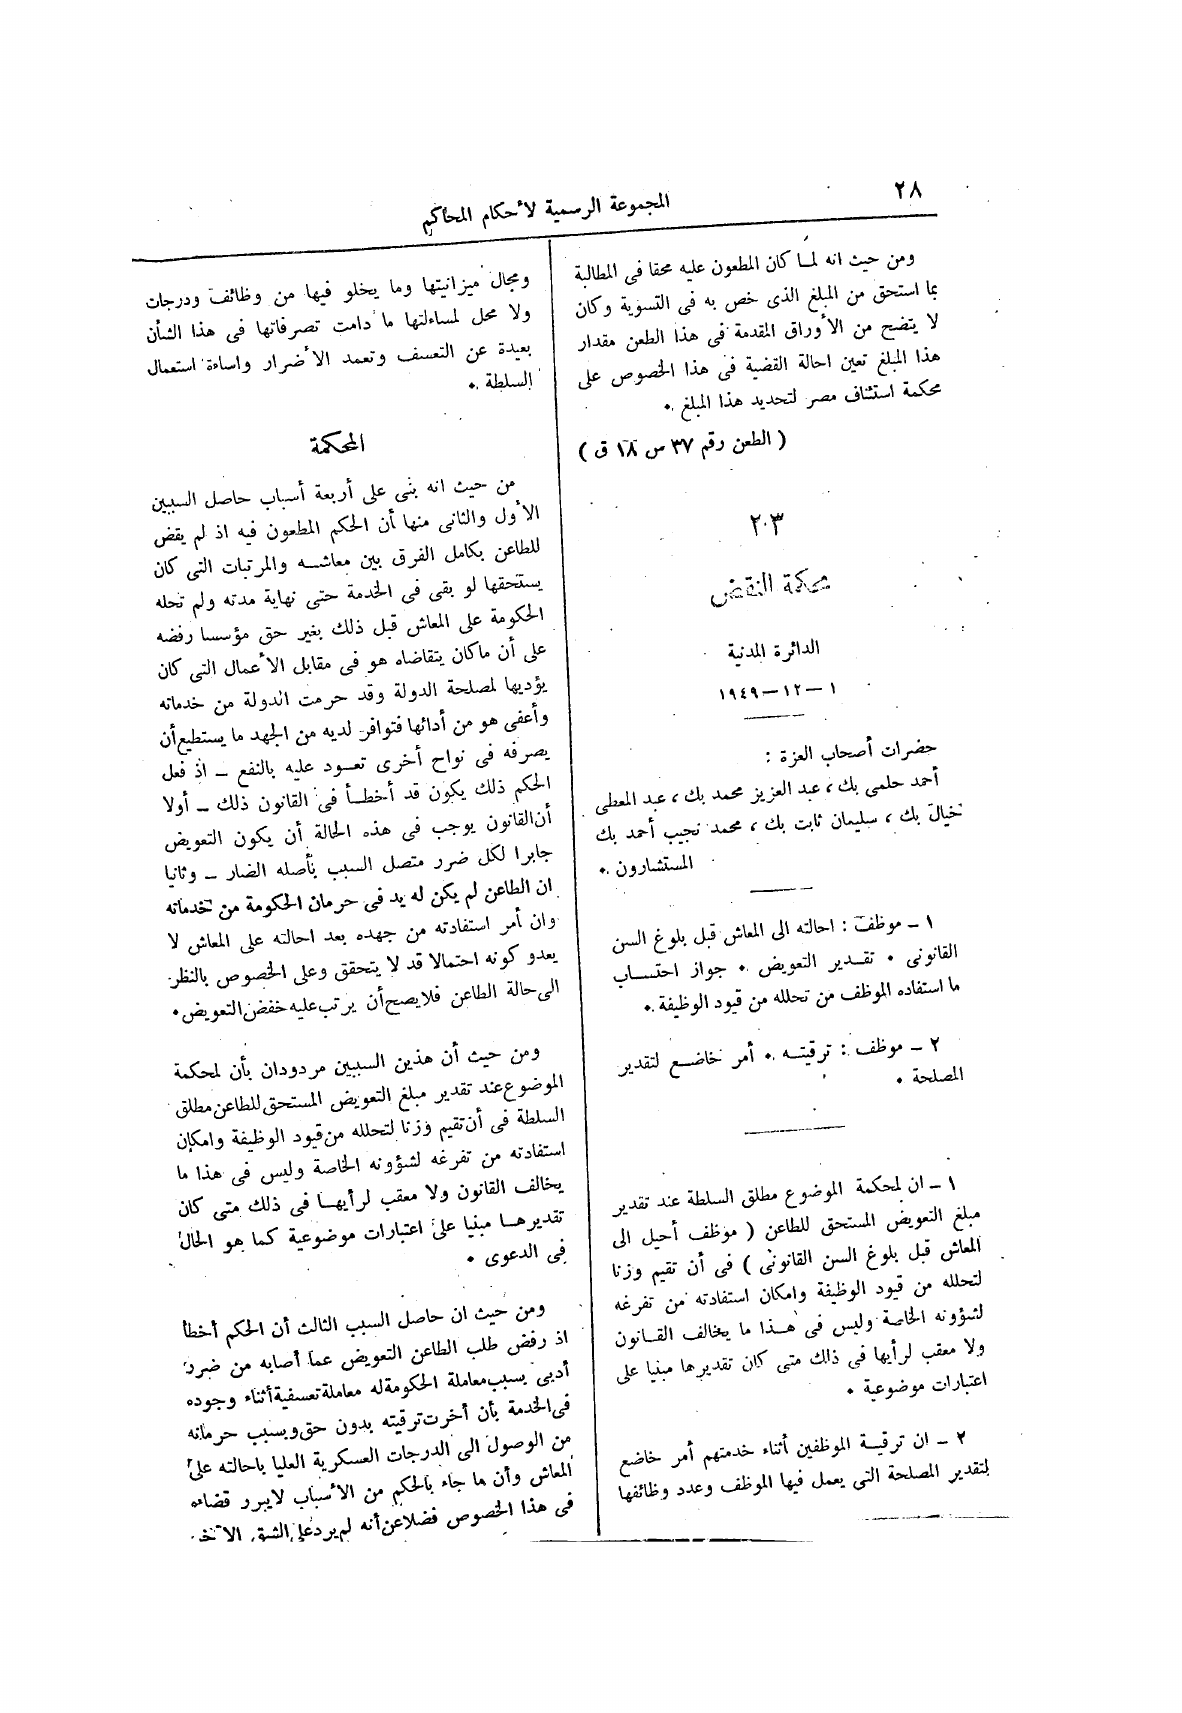 ٢٨
المجموعة الرسمية لأحكام المحاكم
ومن حيث انه لمـا كان المطعون عليه محقا فى المطالبة
بما استحق من المبلغ الذى خص به فى التسوية وكان
لا يتضح من الأوراق المقدمة فى هذا الطعن مقدار
هذا المبلغ تعين احالة القضية فى هذا الخصوص على
محكمة استئناف مصر لتحديد هذا المبلغ .
( الطعن رقم ٣٧ س ١٨ ق )
٢٠٣
محكمة النقض
الدائرة المدنية
١ – ١٢ – ١٩٤٩
حضرات أصحاب العزة :
أحمد حلمى بك ، عبد العزيز محمد بك ، عبد المعطى
خيال بك ، سليمان ثابت بك ، محمد نجيب أحمد بك
المستشارون .
١ – موظف : احالته الى المعاش قبل بلوغ السن
القانونى . تقـدير التعويض . جواز احتسـاب
ما استفاده الموظف من تحلله من قيود الوظيفة .
٢ – موظف : ترقيتـه . أمر خاضـع لتقدير
المصلحة .
١ – ان لمحكمة الموضوع مطلق السلطة عند تقدير
مبلغ التعويض المستحق للطاعن ( موظف أحيل الى
المعاش قبل بلوغ السن القانونى ) فى أن تقيم وزنا
لتحلله من قيود الوظيفة وامكان استفادته من تفرغه
لشؤونه الخاصة وليس فى هـذا ما يخالف القـانون
ولا معقب لرأيها فى ذلك متى كان تقديرها مبنيا على
اعتبارات موضوعية .
٢ – ان ترقيـة الموظفين أثناء خدمتهم أمر خاضع
لتقدير المصلحة التى يعمل فيها الموظف وعدد وظائفها
ومجال ميزانيتها وما يخلو فيها من وظائف ودرجات
ولا محل لمساءلتها ما دامت تصرفاتها فى هذا الشأن
بعيدة عن التعسف وتعمد الأضرار واساءة استعمال
السلطة .
المحكمة
من حيث انه بنى على أربعة أسباب حاصل السببين
الأول والثانى منها أن الحكم المطعون فيه اذ لم يقض
للطاعن بكامل الفرق بين معاشـه والمرتبات التى كان
يستحقها لو بقى فى الخدمة حتى نهاية مدته ولم تحله
الحكومة على المعاش قبل ذلك بغير حق مؤسسا رفضه
على أن ماكان يتقاضاه هو فى مقابل الأعمال التى كان
يؤديها لمصلحة الدولة وقد حرمت الدولة من خدماته
وأعفى هو من أدائها فتوافر لديه من الجهد ما يستطيع أن
يصرفه فى نواح أخرى تعـود عليه بالنفع – اذ فعل
الحكم ذلك يكون قد أخطـأ فى القانون ذلك – أولا
أن القانون يوجب فى هذه الحالة أن يكون التعويض
جابرا لكل ضرر متصل السبب بأصله الضار – وثانيا
ان الطاعن لم يكن له يد فى حرمان الحكومة من خدماته
وان أمر استفادته من جهده بعد احالته على المعاش لا
يعدو كونه احتمالا قد لا يتحقق وعلى الخصوص بالنظر
الى حالة الطاعن فلا يصح أن يرتب عليه خفض التعويض .
ومن حيث أن هذين السببين مردودان بأن لمحكمة
الموضوع عند تقدير مبلغ التعويض المستحق للطاعن مطلق
السلطة فى أن تقيم وزنا لتحلله من قيود الوظيفة وامكان
استفادته من تفرغه لشؤونه الخاصة وليس فى هذا ما
يخالف القانون ولا معقب لرأيهـا فى ذلك متى كان
تقديرهـا مبنيا على اعتبارات موضوعية كما هو الحال
فى الدعوى .
ومن حيث ان حاصل السبب الثالث أن الحكم أخطأ
اذ رفض طلب الطاعن التعويض عما أصابه من ضرر
أدبى بسبب معاملة الحكومة له معاملة تعسفية أثناء وجوده
فى الخدمة بأن أخرت ترقيته بدون حق وبسبب حرمانه
من الوصول الى الدرجات العسكرية العليا باحالته على
المعاش وأن ما جاء بالحكم من الأسباب لا يبرر قضاءه
فى هذا الخصوص فضلا عن أنه لم يرد على الشق الآخر